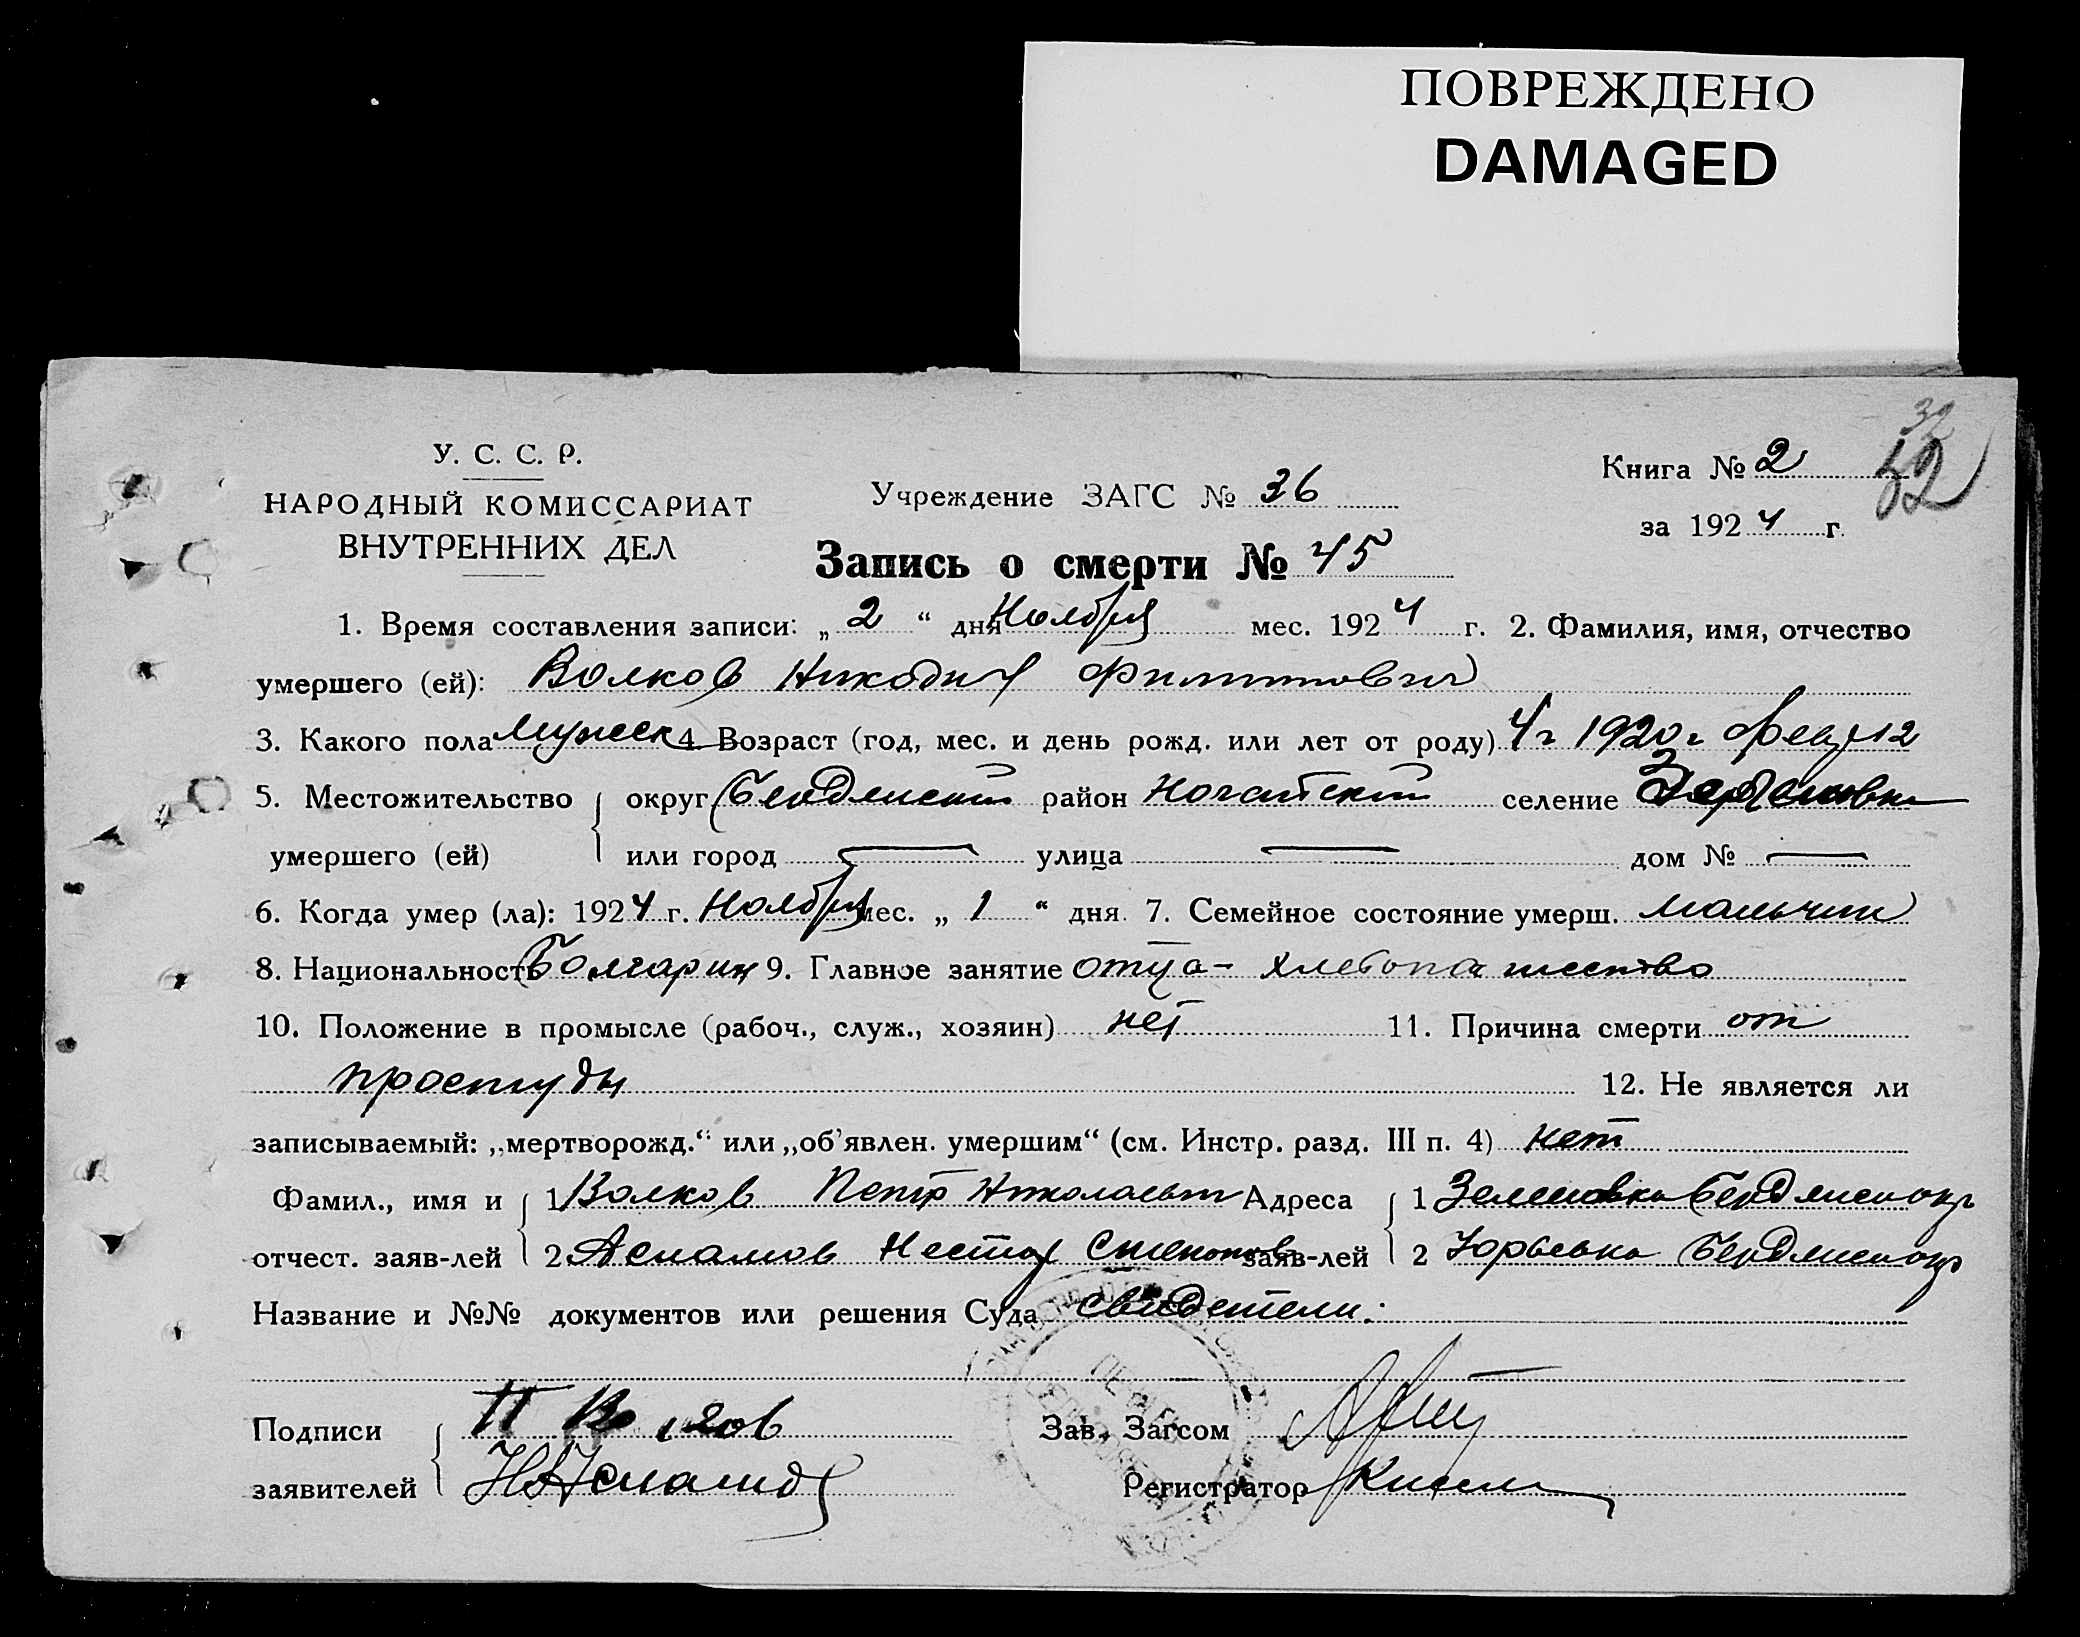 ПОВРЕЖДЕНО
DAMAGED
32
52
У. С. С. Р.
НАРОДНЫЙ КОМИССАРИАТ
ВНУТРЕННИХ ДЕЛ
Учреждение ЗАГС № 36
Книга № 2
за 1924 г.
Запись о смерти № 45
1. Время составления записи: „2“ дня Ноября мес. 1924 г. 2. Фамилия, имя, отчество
умершего (ей): Волков Никодим Филиппович
3. Какого пола Мужск 4. Возраст (год, мес. и день рожд. или лет от роду) 4 г 1920 г Фев 12
5. Местожительство округ Бердянский район Ногайский селение
умершего (ей) или город — улица — дом № —
6. Когда умер (ла): 1924 г. Ноября мес. „1“ дня. 7. Семейное состояние умерш. мальчик
8. Национальность Болгарин 9. Главное занятие отца - хлебопашество
10. Положение в промысле (рабоч., служ., хозяин) нет 11. Причина смерти от
простуды 12. Не является ли
записываемый: „мертворожд.“ или „об’явлен. умершим“ (см. Инстр. разд. III п. 4) нет
Фамил., имя и 1 Волков Петр Николаевич Адреса 1 Зеленовка Бердянск окр
отчест. заяв-лей 2 Асламов Нестор Степанов заяв-лей 2 Юрьевка Бердянск окр
Название и №№ документов или решения Суда свидетели:
Подписи П Волков Зав. Загсом
заявителей Н Асламов Регистратор